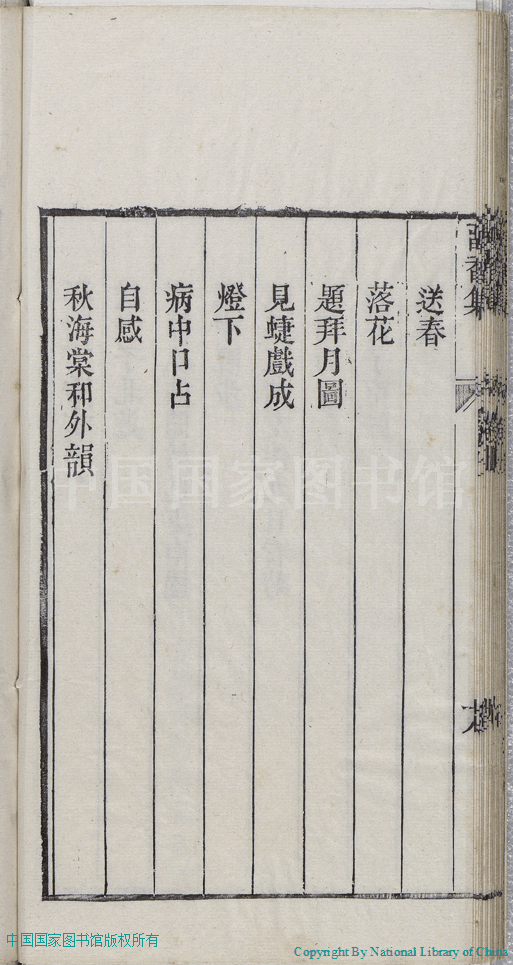 送春
落花
題拜月圖
見蜨戲成
燈下
病中口占
自感
秋海棠和外韻
中国国家图书馆
中国国家图书馆版权所有
Copyright By National Library of China